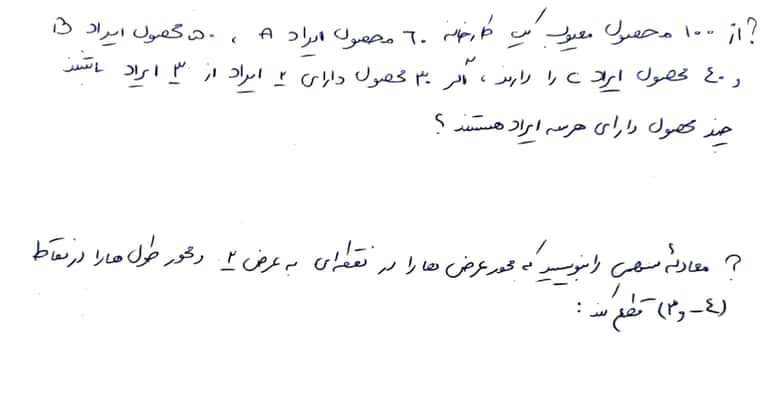 ؟ از ۱۰۰ محصول معیوب یک کارخانه ۶۰ محصول ایراد A ، ۵۰ محصول ایراد B
و ۴۰ محصول ایراد C را دارند ، اگر ۳۰ محصول دارای ۲ ایراد از ۳ ایراد باشند
چند محصول دارای هر سه ایراد هستند ؟
؟ معادلهٔ سهمی را بنویسید که محور عرض ها را در نقطه‌ای به عرض ۲ و محور طول ها را در نقاط
(۳ و ۴-) قطع کند :